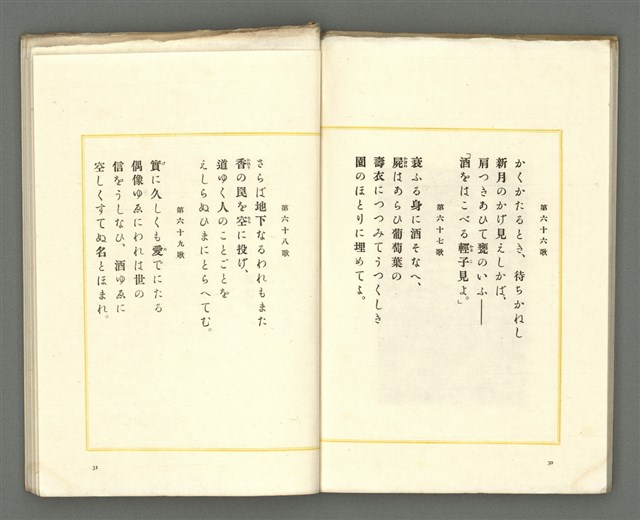 第六十六歌
かくかたるとき、待ちかねし
新月のかげ見えしかば、
肩つきあひて甕のいふ――
「酒をはこべる輕子見よ。」
第六十七歌
衰ふる身に酒そなへ、
屍はあらひ葡萄葉の
壽衣につつみてうつくしき
園のほとりに埋めてよ。
30
第六十八歌
さらば地下なるわれもまた
香の罠を空に投げ、
道ゆく人のことごとを
えしらぬひまにとらへてむ。
第六十九歌
實に久しくも愛でにたる
偶像ゆゑにわれは世の
信をうしなひ、酒ゆゑに
空しくすてぬ名とほまれ。
31